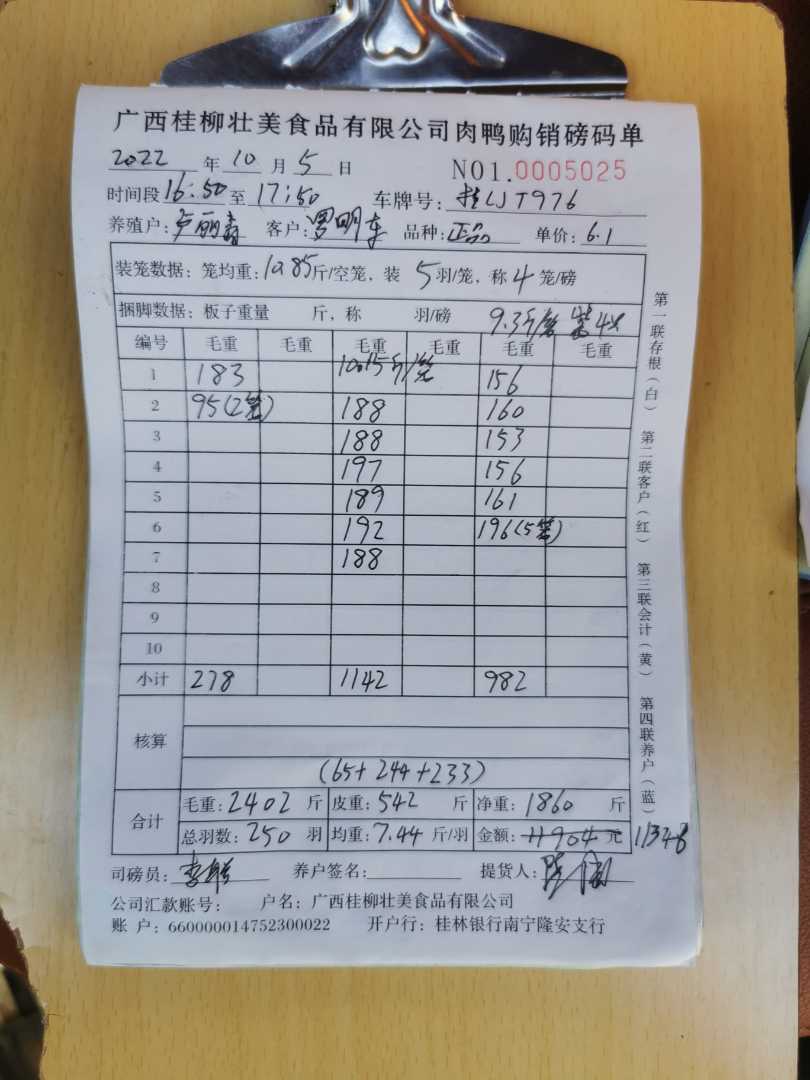 广西桂柳壮美食品有限公司肉鸭购销磅码单
2022 年 10 月 5 日 NO1.0005025
时间段 16:50 至 17:50 车牌号: 桂LJT976
养殖户: 卢丽 客户: 罗明 品种: 正品 单价: 6.1
装笼数据: 笼均重: 10.85 斤/空笼, 装 5 羽/笼, 称 4 笼/磅
捆脚数据: 板子重量 斤, 称 羽/磅 9.3斤/笼 装4只
编号 毛重 毛重 毛重 毛重 毛重 毛重
1 183 10.15斤/笼 156
2 95(2笼) 188 160
3 188 153
4 197 156
5 189 161
6 192 196(5笼)
7 188
8
9
10
小计 278 1142 982
核算
(65+244+233)
合计
毛重: 2402 斤 皮重: 542 斤 净重: 1860 斤
总羽数: 250 羽 均重: 7.44 斤/羽 金额: 11904 元 11348
司磅员: 养户签名: 提货人:
公司汇款账号: 户名: 广西桂柳壮美食品有限公司
账 户: 660000014752300022 开户行: 桂林银行南宁隆安支行
第一联存根(白) 第二联客户(红) 第三联会计(黄) 第四联养户(蓝)